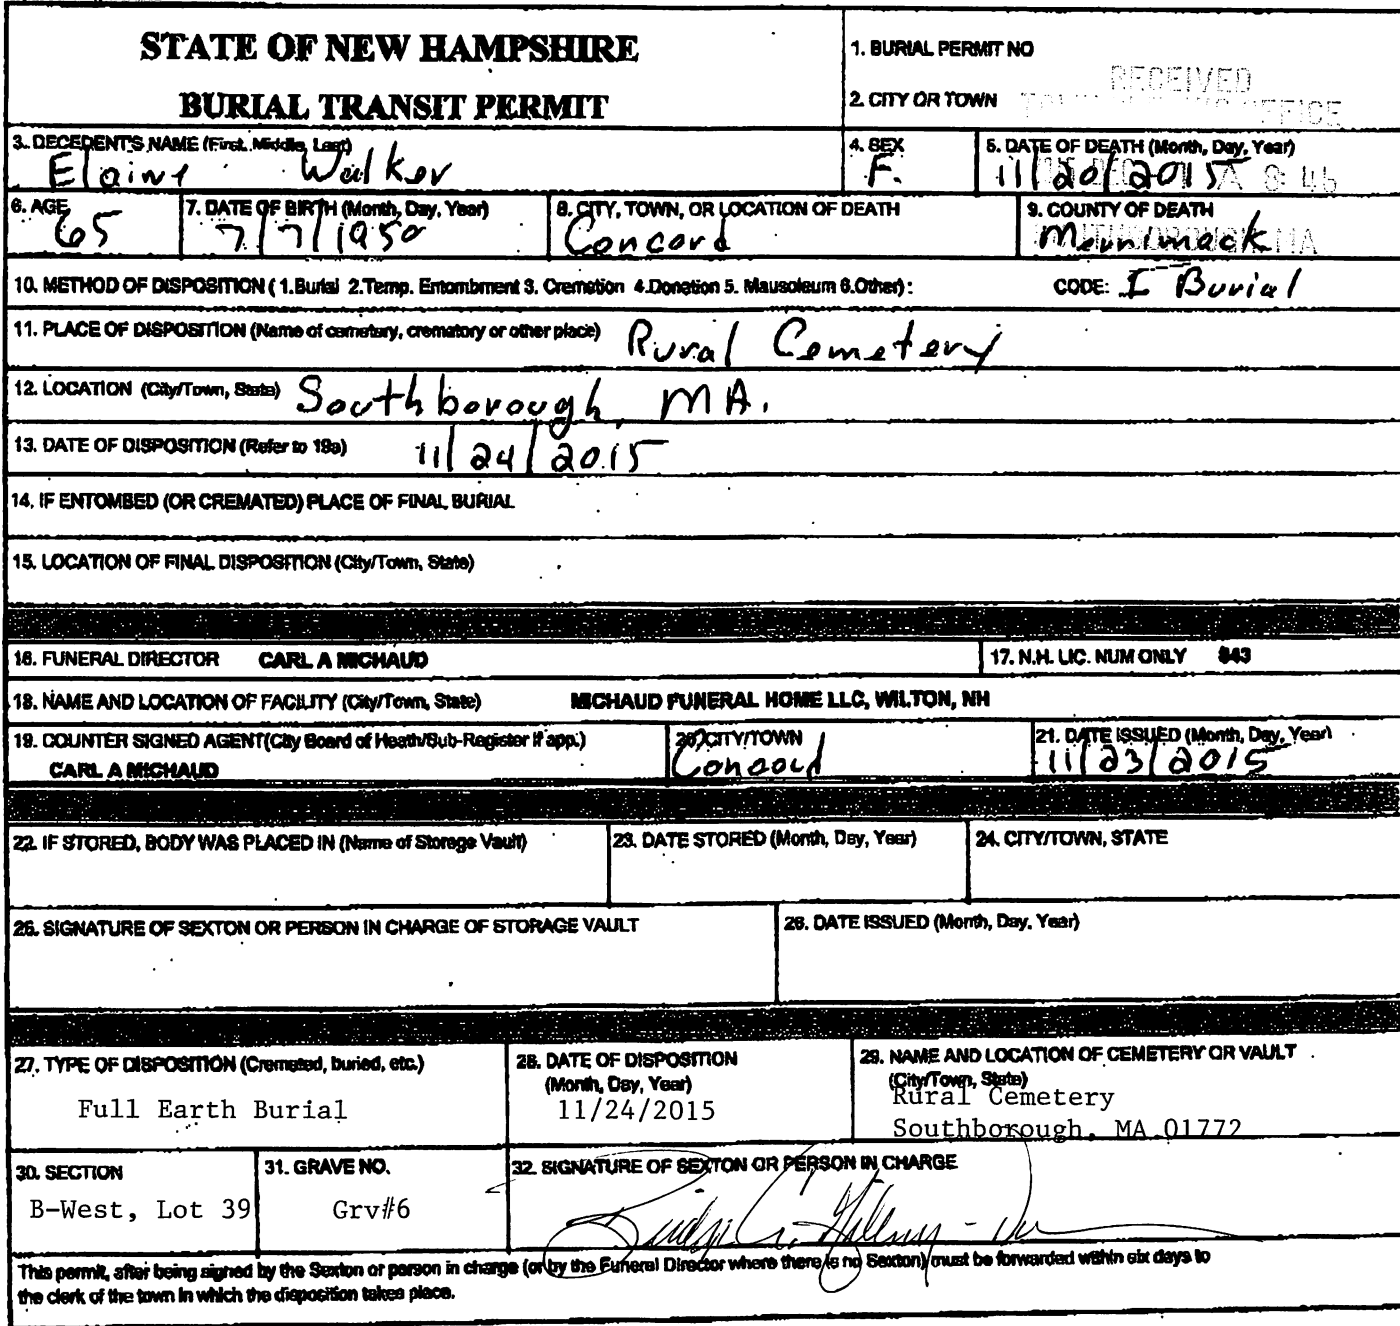 STATE OF NEW HAMPSHIRE
BURIAL TRANSIT PERMIT
1. BURIAL PERMIT NO
2. CITY OR TOWN
RECEIVED
OFFICE
3. DECEDENT'S NAME (First, Middle, Last)
Elaine Walker
4. SEX
F.
5. DATE OF DEATH (Month, Day, Year)
11/20/2015
A 8:46
6. AGE
65
7. DATE OF BIRTH (Month, Day, Year)
7/7/1950
8. CITY, TOWN, OR LOCATION OF DEATH
Concord
9. COUNTY OF DEATH
Merrimack
MA
10. METHOD OF DISPOSITION ( 1.Burial 2.Temp. Entombment 3. Cremation 4.Donation 5. Mausoleum 6.Other) :
CODE: I Burial
11. PLACE OF DISPOSITION (Name of cemetary, crematory or other place) Rural Cemetery
12. LOCATION (City/Town, State) Southborough, MA.
13. DATE OF DISPOSITION (Refer to 19a) 11/24/2015
14. IF ENTOMBED (OR CREMATED) PLACE OF FINAL BURIAL
15. LOCATION OF FINAL DISPOSITION (City/Town, State)
16. FUNERAL DIRECTOR CARL A MICHAUD
17. N.H. LIC. NUM ONLY 843
18. NAME AND LOCATION OF FACILITY (City/Town, State) MICHAUD FUNERAL HOME LLC, WILTON, NH
19. COUNTER SIGNED AGENT(City Board of Heath/Sub-Register if app.)
CARL A MICHAUD
20. CITY/TOWN
Concord
21. DATE ISSUED (Month, Day, Year)
11/23/2015
22. IF STORED, BODY WAS PLACED IN (Name of Storage Vault)
23. DATE STORED (Month, Day, Year)
24. CITY/TOWN, STATE
25. SIGNATURE OF SEXTON OR PERSON IN CHARGE OF STORAGE VAULT
26. DATE ISSUED (Month, Day, Year)
27. TYPE OF DISPOSITION (Cremated, buried, etc.)
Full Earth Burial
28. DATE OF DISPOSITION
(Month, Day, Year)
11/24/2015
29. NAME AND LOCATION OF CEMETERY OR VAULT
(City/Town, State)
Rural Cemetery
Southborough, MA 01772
30. SECTION
B-West, Lot 39
31. GRAVE NO.
Grv#6
32. SIGNATURE OF SEXTON OR PERSON IN CHARGE
This permit, after being signed by the Sexton or person in charge (or by the Funeral Director where there is no Sexton) must be forwarded within six days to
the clerk of the town in which the disposition takes place.